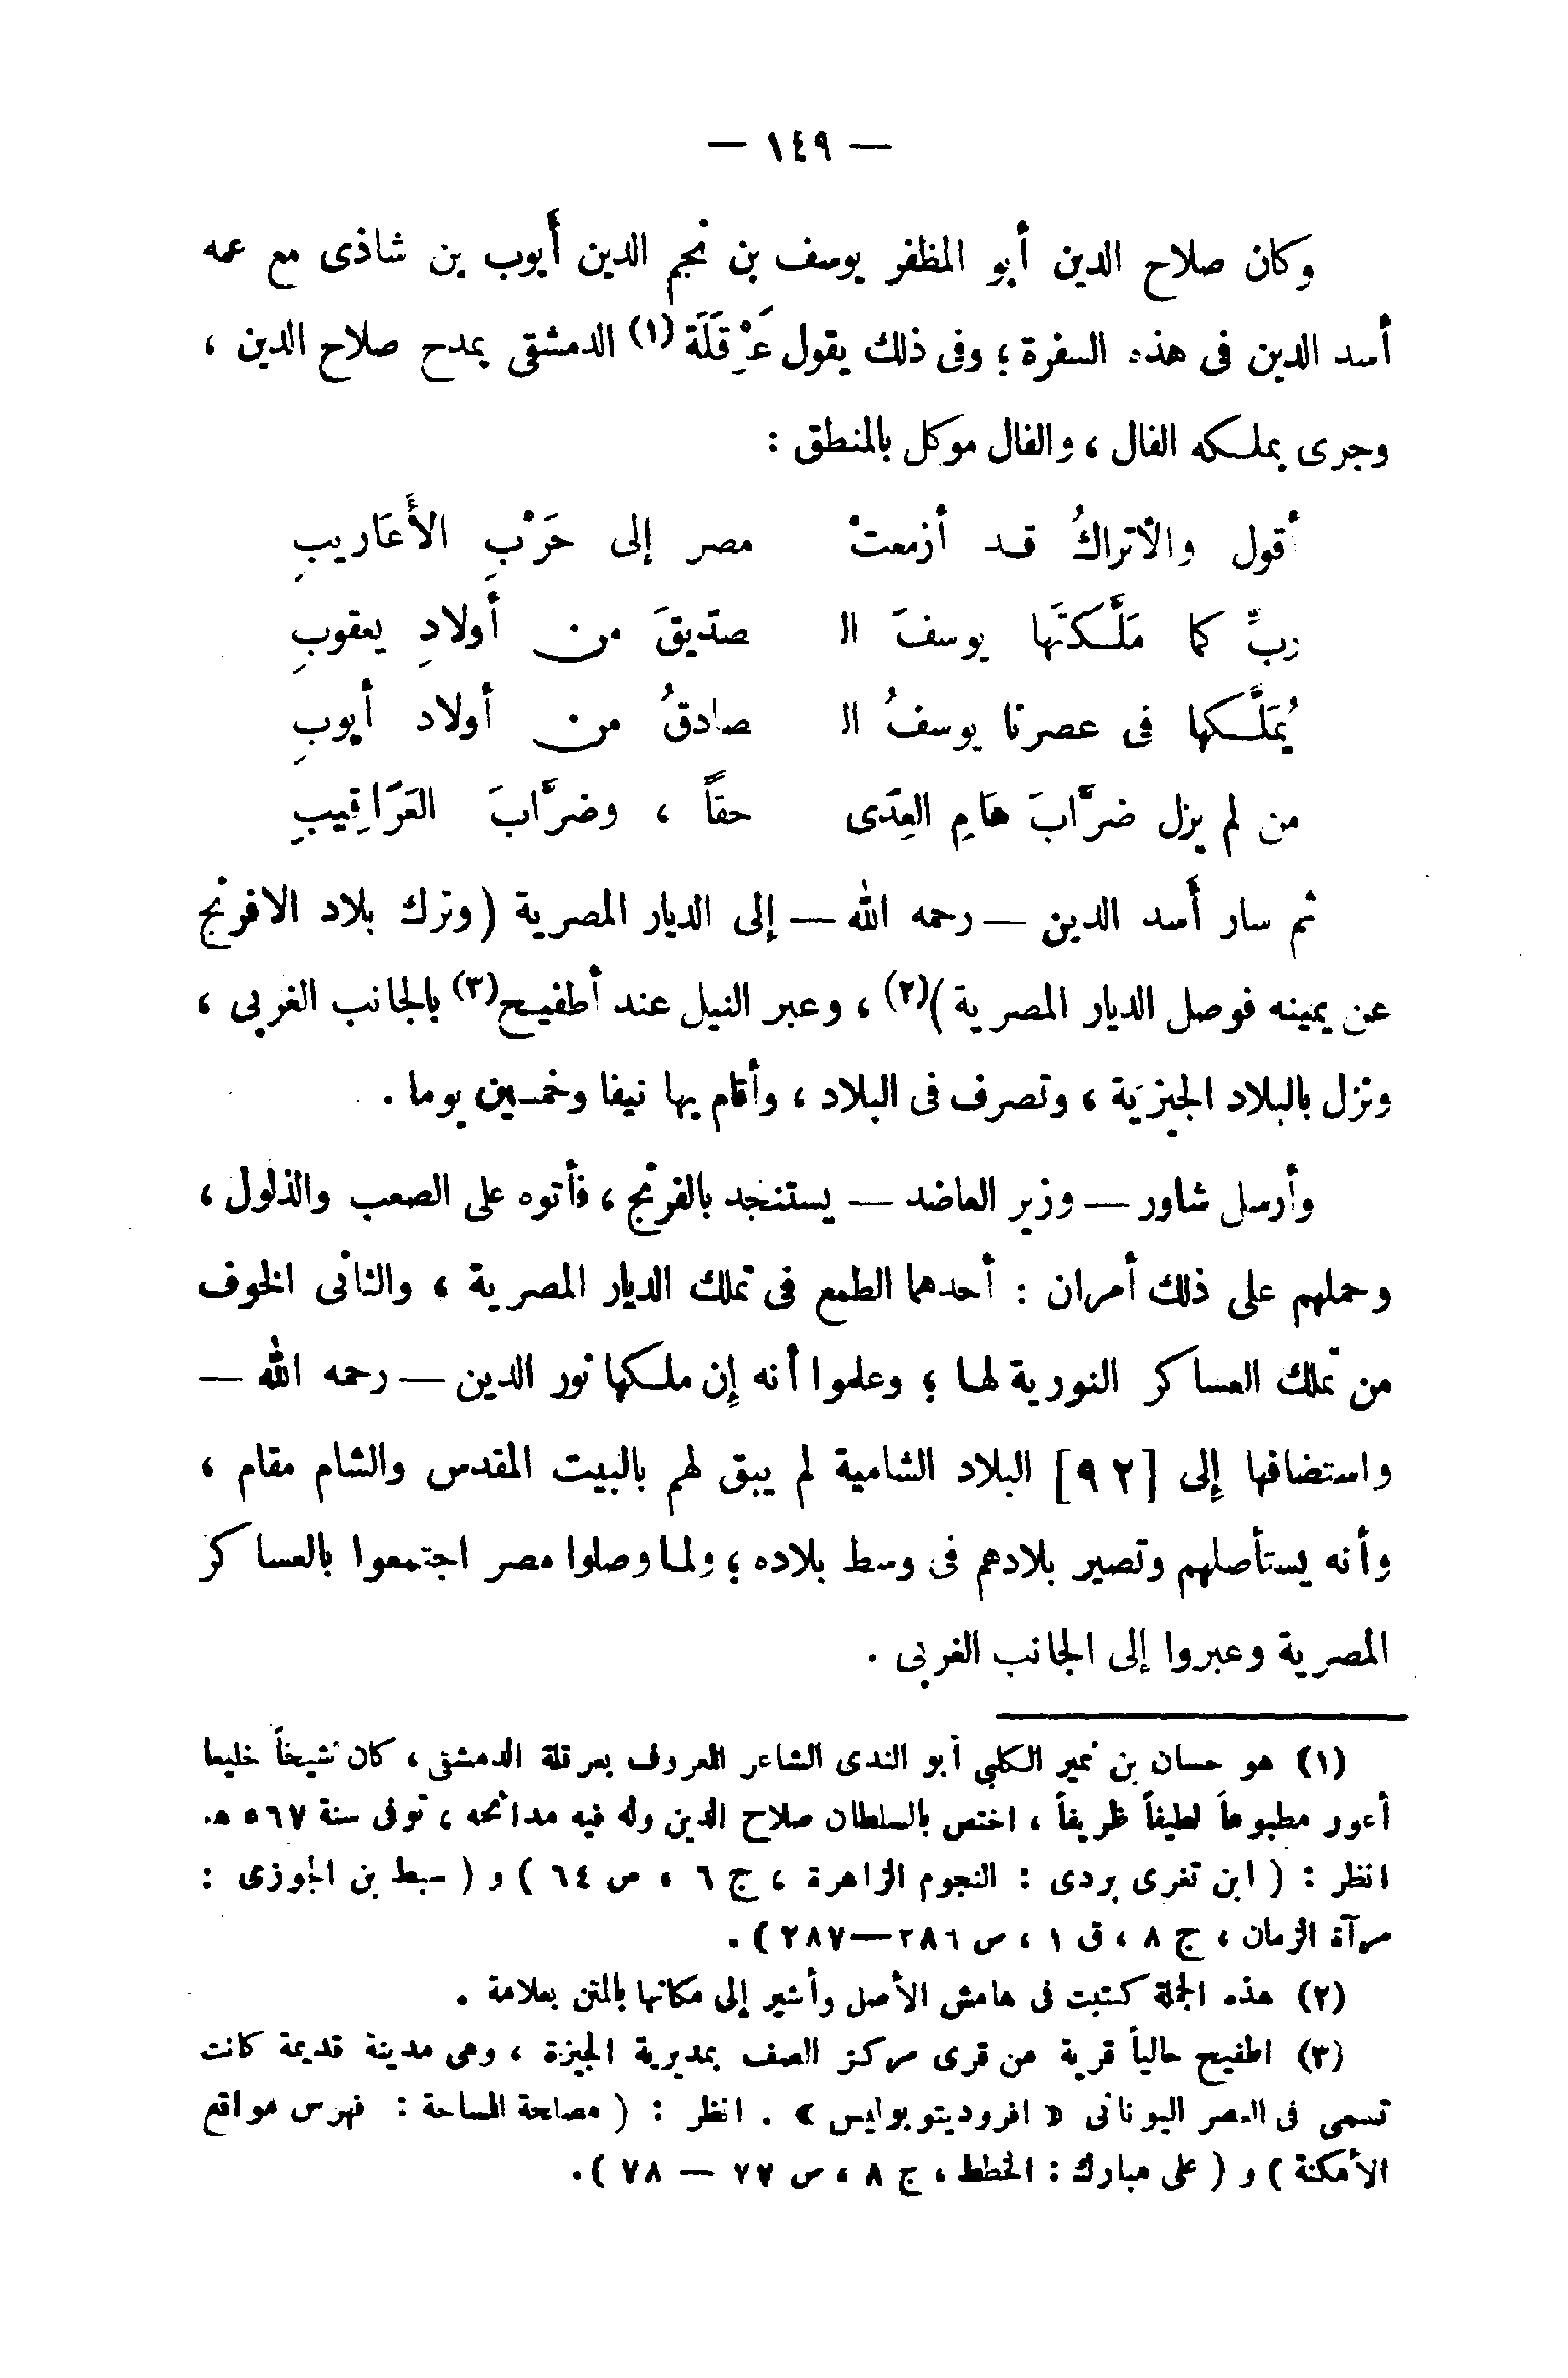 — ١٤٩ —
وكان صلاح الدين أبو المظفر يوسف بن نجم الدين أيوب بن شاذى مع عمه
أسد الدين فى هذه السفرة ؛ وفى ذلك يقول عَرْقَلَة (١) الدمشقى يمدح صلاح الدين ،
وجرى بملكه الفال ، والفال موكل بالمنطق :
أقول والأتراكُ قد أزمعتْ مصر إلى حَرْبِ الأَعَاريبِ
ربِّ كما مَلَّكتَها يوسفَ الـ صدّيقَ من أولادِ يعقوبِ
يُمَلَّكها فى عصرنا يوسفُ الـ صادقُ من أولاد أيوبِ
من لم يزل ضرَّابَ هَامِ العِدَى حقاً ، وضرَّابَ العَرَاقِيبِ
ثم سار أسد الدين — رحمه الله — إلى الديار المصرية (وترك بلاد الافرنج
عن يمينه فوصل الديار المصرية )(٢) ، وعبر النيل عند أطفيح(٣) بالجانب الغربى ،
ونزل بالبلاد الجيزية ، وتصرف فى البلاد ، وأقام بها نيفا وخمسين يوما .
وأرسل شاور — وزير العاضد — يستنجد بالفرنج ، فأتوه على الصعب والذلول ،
وحملهم على ذلك أمران : أحدهما الطمع فى تملك الديار المصرية ، والثانى الخوف
من تملك العساكر النورية لها ؛ وعلموا أنه إن ملكها نور الدين — رحمه الله —
واستضافها إلى [٩٢] البلاد الشامية لم يبق لهم بالبيت المقدس والشام مقام ،
وأنه يستأصلهم وتصير بلادهم فى وسط بلاده ؛ ولما وصلوا مصر اجتمعوا بالعساكر
المصرية وعبروا إلى الجانب الغربى .
(١) هو حسان بن نمير الكلبي أبو الندى الشاعر المعروف بعرقلة الدمشقى ، كان شيخاً خليعا
أعور مطبوعاً لطيفاً ظريفاً ، اختص بالسلطان صلاح الدين وله فيه مدائحه ، توفى سنة ٥٦٧ هـ.
انظر : ( ابن تغرى بردى : النجوم الزاهرة ، ج ٦ ، ص ٦٤ ) و ( سبط بن الجوزى :
مرآة الزمان ، ج ٨ ، ق ١ ، ص ٢٨٦—٢٨٧ ) .
(٢) هذه الجملة كتبت فى هامش الأصل وأشير إلى مكانها بالمتن بعلامة .
(٣) اطفيح حالياً قرية من قرى مركز الصف بمديرية الجيزة ، وهى مدينة قديمة كانت
تسمى فى العصر اليونانى « افروديتوبوليس » . انظر : ( مصلحة المساحة : فهرس مواقع
الأمكنة ) و ( على مبارك : الخطط ، ج ٨ ، ص ٧٧ — ٧٨ ) .